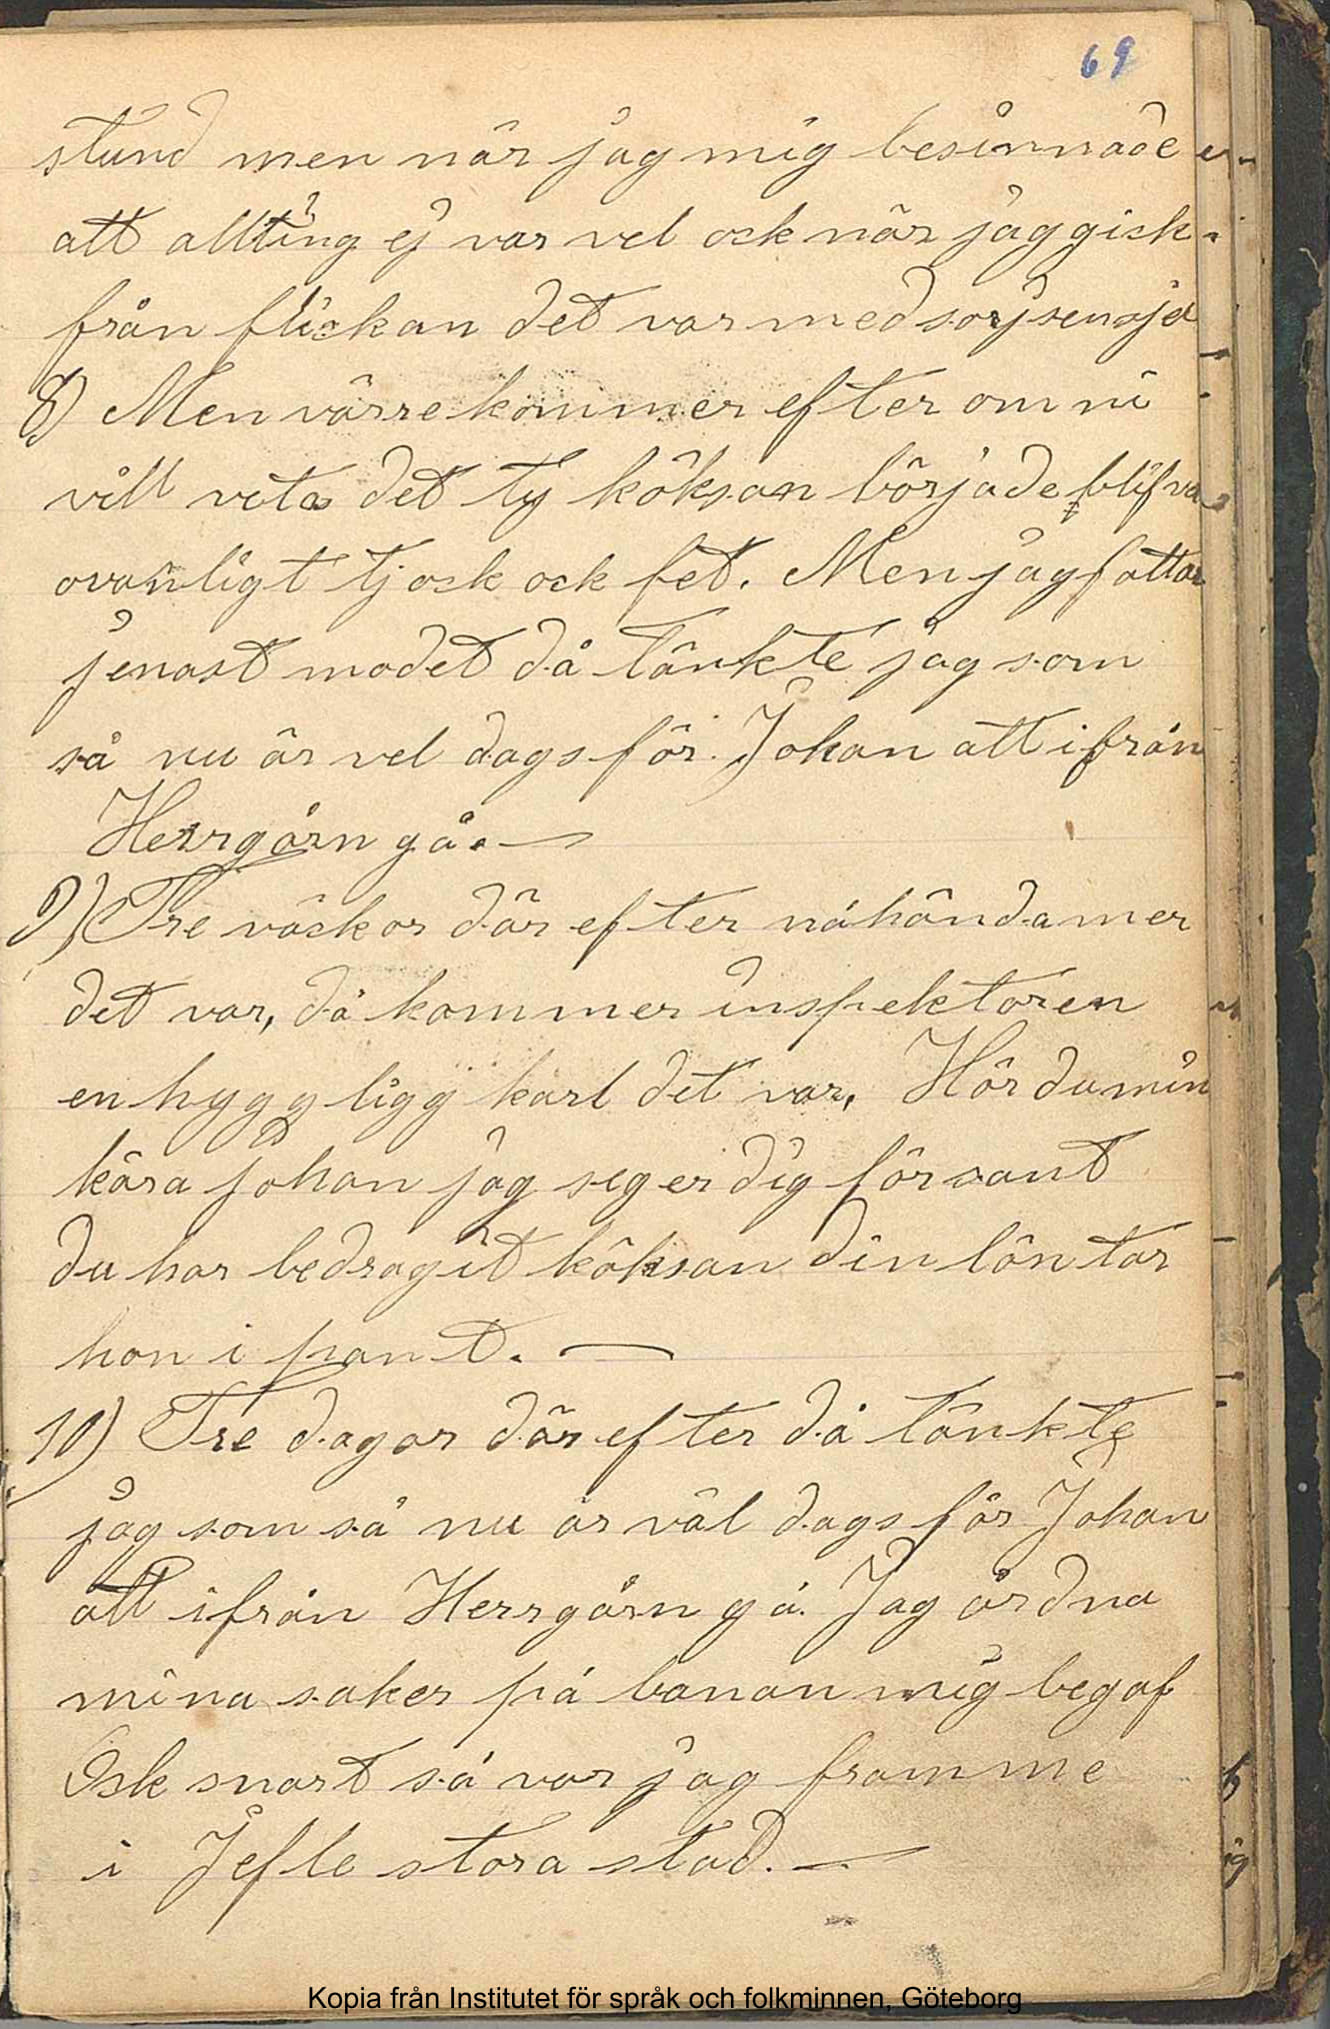 69
stund men när jag mig besinnade
att allting ej var vel ock när jag gick
från flickan det var med sorjsen sjel
8) Men värre kommer efter om ni
vill veta det ty köksan började blifva
ovanligt tjock ock fet. Men jag fattar
jenast modet då tänkte jag som
så nu är vel dags för Johan att ifrån
Herrgårn gå. —
9) Tre väckor där efter nå hända mer
det var, då kommer inspektoren
en hygglig karl det var. Hör du min
kära johan jag seger dig för sant
du har bedragit köksan din lön tar
hon i pant. —
10) Tre dagar där efter då tänkte
jag som så nu är väl dags för Johan
att ifrån Herrgårn gå. Jag årdna
mina saker på banan mig begaf
Ock snart så var jag framme
i Jefle stora stad. —
Kopia från Institutet för språk och folkminnen, Göteborg